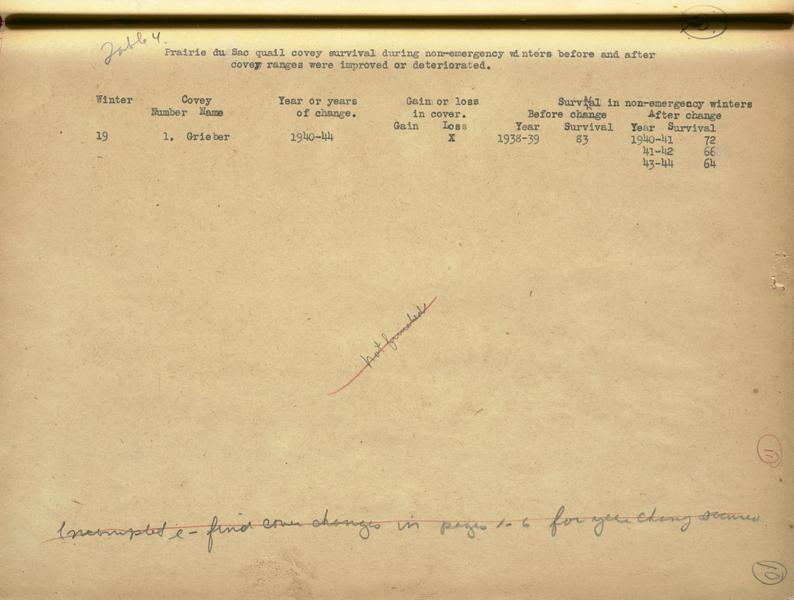 Table 4.
Prairie du Sac quail covey survival during non-emergency winters before and after
covey ranges were improved or deteriorated.
Winter Covey Year or years Gain or loss Survival in non-emergency winters
Number Name of change. in cover. Before change After change
Gain Loss Year Survival Year Survival
19 1. Grieber 1940-44 X 1938-39 83 1940-41 72
41-42 66
43-44 64
Not finished
11
Incomplete - find cover changes in pages 1-6 for year change
10